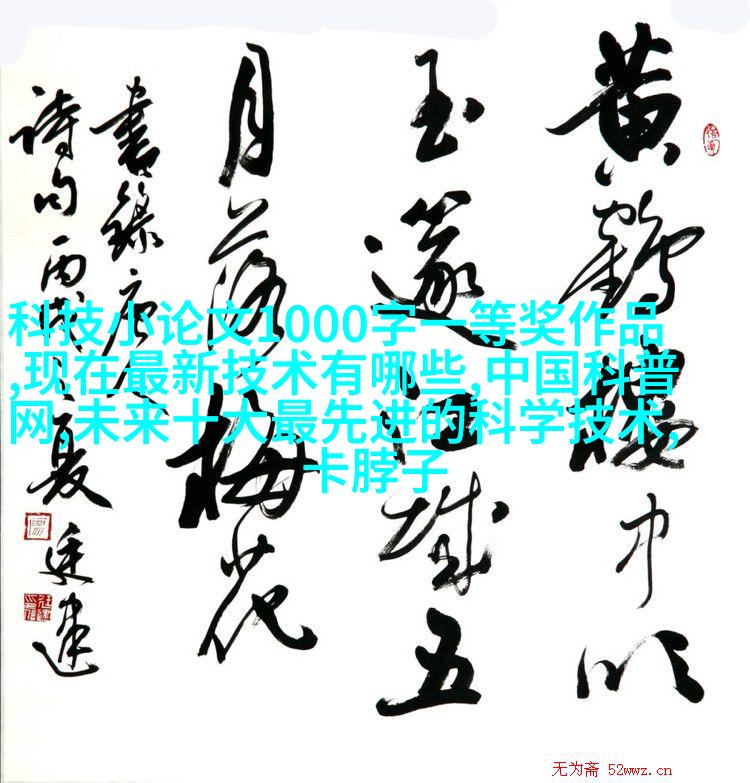 黄鹤楼中吹
玉篴江城五
月落梅花
書錄唐人
诗句丙戌之夏
科技小论文1000字一等奖作品
,现在最新技术有哪些,中国科普
网,未来十大最先进的科学技术,
卡脖子
无为斋 52wwz.cn